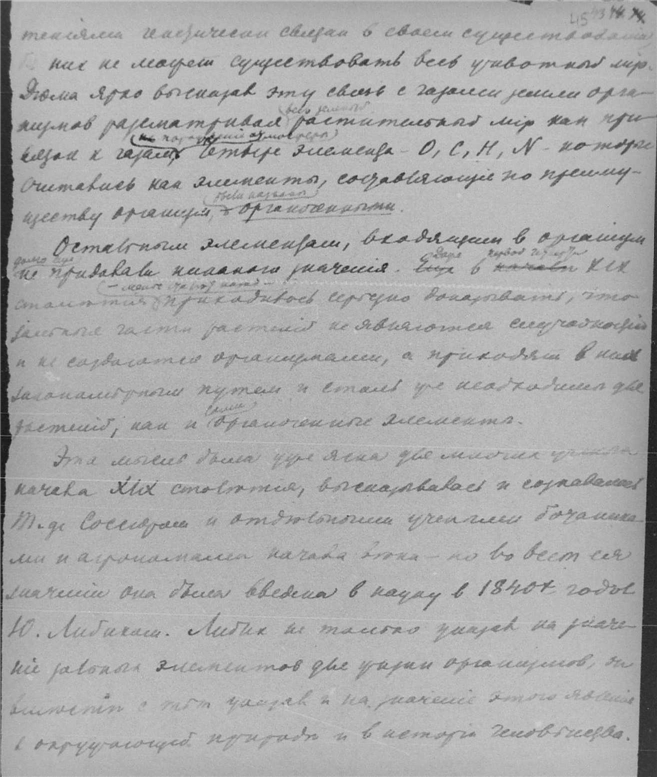 45
тенiями генетически связан в своем существовании
них не может существовать весь животный мiр.
Дюма ярко высказав эту связь с газами земли орга-
весь земной
низмов рассматривал растительный мiр как при-
четыре элемента - O, C, H, N - которые
считались как элементы, составляющiе по преиму-
были названы
ществу организм, органогенными.
Остальным элементам, входящим в организм
долго еще
не придавали никакого значенiя. Еще в начале XIX
столетiя приходилось серьезно доказывать, что
зольные части растенiй не являются случайностью
и не создаются организмами, а приходят в них
закономерным путем и столь же необходимы для
самые
растенiй, как и органогенные элементы.
Эта мысль была уже ясна для многих
начала XIX столетiя, высказывалась и сознавалась
Т. де Соссюром и отдельными учеными ботаника-
ми и агрономами начала века — но во всем ея
значенiи она была введена в науку в 1840х годах
Ю. Либихом. Либих не только указал на значе-
нiе зольных элементов для жизни организмов, он
вместе с тем указал и на значенiе этого явленiя
в окружающей природе и в исторiи человечества.